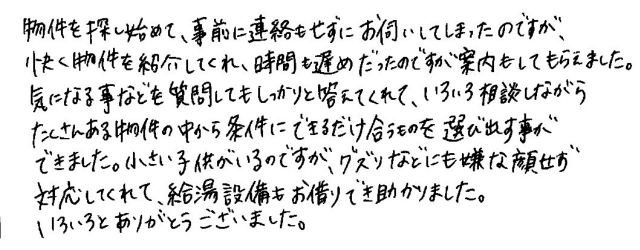 物件を探し始めて、事前に連絡もせずにお伺いしてしまったのですが、
快く物件を紹介してくれ、時間も遅めだったのですが案内もしてもらえました。
気になる事などを質問してもしっかりと答えてくれて、いろいろ相談しながら
たくさんある物件の中から条件にできるだけ合うものを選び出す事が
できました。小さい子供がいるのですが、グズリなどにも嫌な顔せず
対応してくれて、給湯設備もお借りでき助かりました。
いろいろとありがとうございました。